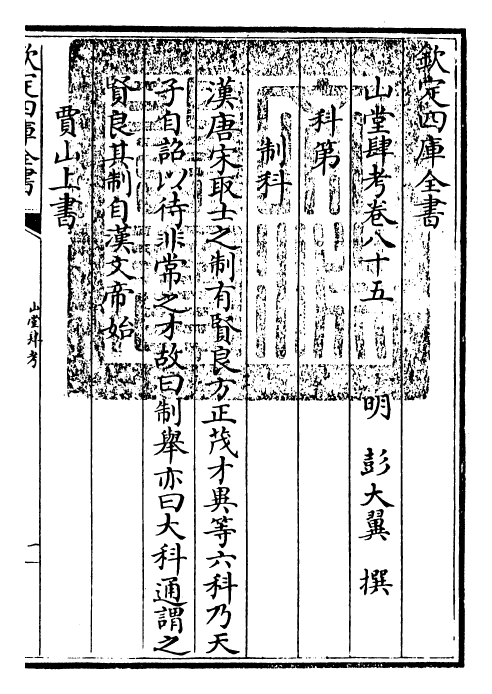 欽定四庫全書
山堂肆考卷八十五　明　彭大翼　撰
科第
制科
漢唐宋取士之制有賢良方正茂才異等六科乃天
子自詔以待非常之才故曰制舉亦曰大科通謂之
賢良其制自漢文帝始
賈山上書
欽定四庫全書
山堂肆考
一